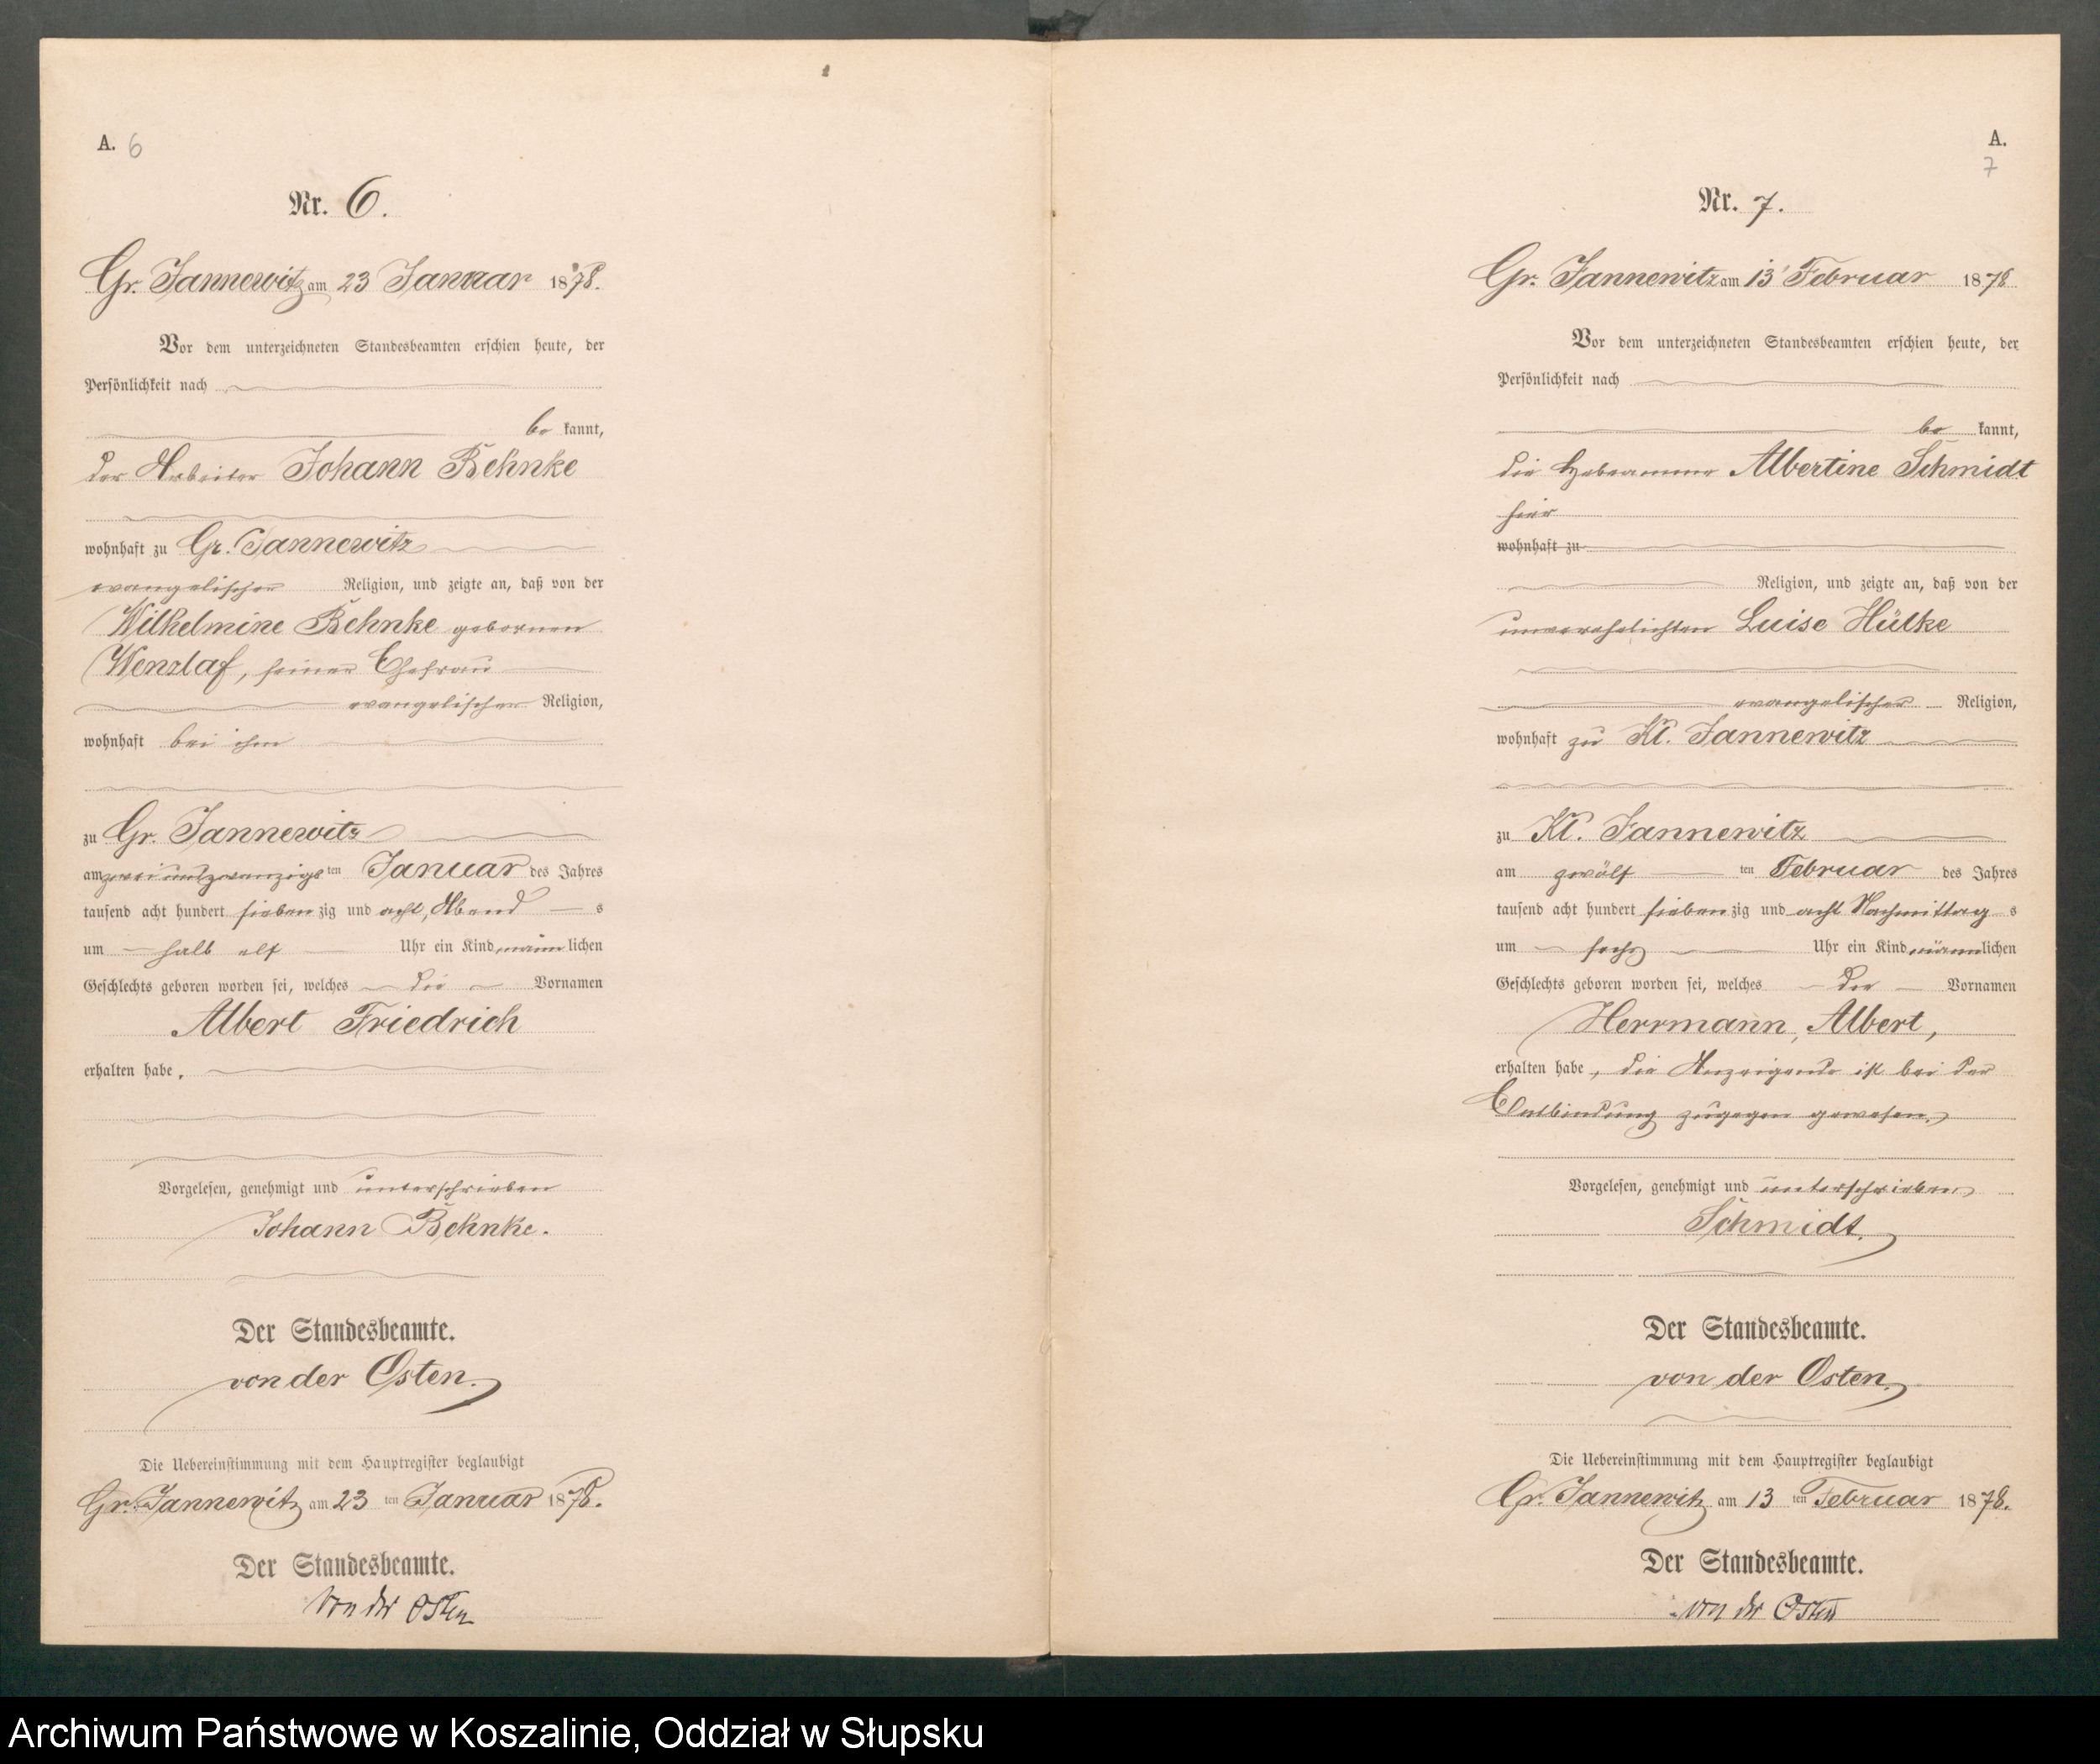 A. 6
Nr. 6.
Gr. Jannewitz am 23 Januar 1878.
Vor dem unterzeichneten Standesbeamten erschien heute, der
Persönlichkeit nach
be kannt,
der Arbeiter Johann Behnke
wohnhaft zu Gr. Jannewitz
evangelischer Religion, und zeigte an, daß von der
Wilhelmine Behnke gebornen
Wenzlaf, seiner Ehefrau
evangelischer Religion,
wohnhaft bei ihm
zu Gr. Jannewitz
am zwei und zwanzigs ten Januar des Jahres
tausend acht hundert sieben zig und acht, Abend s
um halb elf Uhr ein Kind männ lichen
Geschlechts geboren worden sei, welches die Vornamen
Albert Friedrich
erhalten habe.
Vorgelesen, genehmigt und unterschrieben
Johann Behnke.
Der Standesbeamte.
von der Osten.
Die Uebereinstimmung mit dem Hauptregister beglaubigt
Gr. Jannewitz am 23 ten Januar 1878.
Der Standesbeamte.
von der Osten
A.
7
Nr. 7.
Gr. Jannewitz am 13 Februar 1878
Vor dem unterzeichneten Standesbeamten erschien heute, der
Persönlichkeit nach
be kannt,
die Hebeamme Albertine Schmidt
hier
wohnhaft zu
Religion, und zeigte an, daß von der
unverehelichten Luise Hülke
evangelischer Religion,
wohnhaft zu Kl. Jannewitz
zu Kl. Jannewitz
am zwölf ten Februar des Jahres
tausend acht hundert sieben zig und acht Nachmittag s
um sechs Uhr ein Kind männ lichen
Geschlechts geboren worden sei, welches die Vornamen
Herrmann, Albert,
erhalten habe, die Anzeigende ist bei der
Entbindung zugegen gewesen.
Vorgelesen, genehmigt und unterschrieben
Schmidt.
Der Standesbeamte.
von der Osten.
Die Uebereinstimmung mit dem Hauptregister beglaubigt
Gr. Jannewitz am 13 ten Februar 1878.
Der Standesbeamte.
von der Osten
Archiwum Państwowe w Koszalinie, Oddział w Słupsku